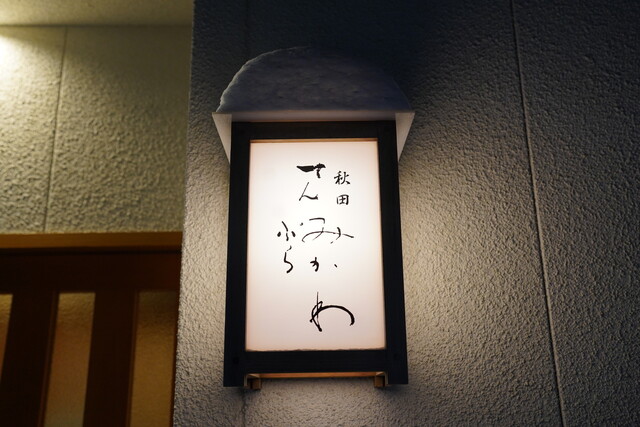 秋田
みかわ
てんぷら